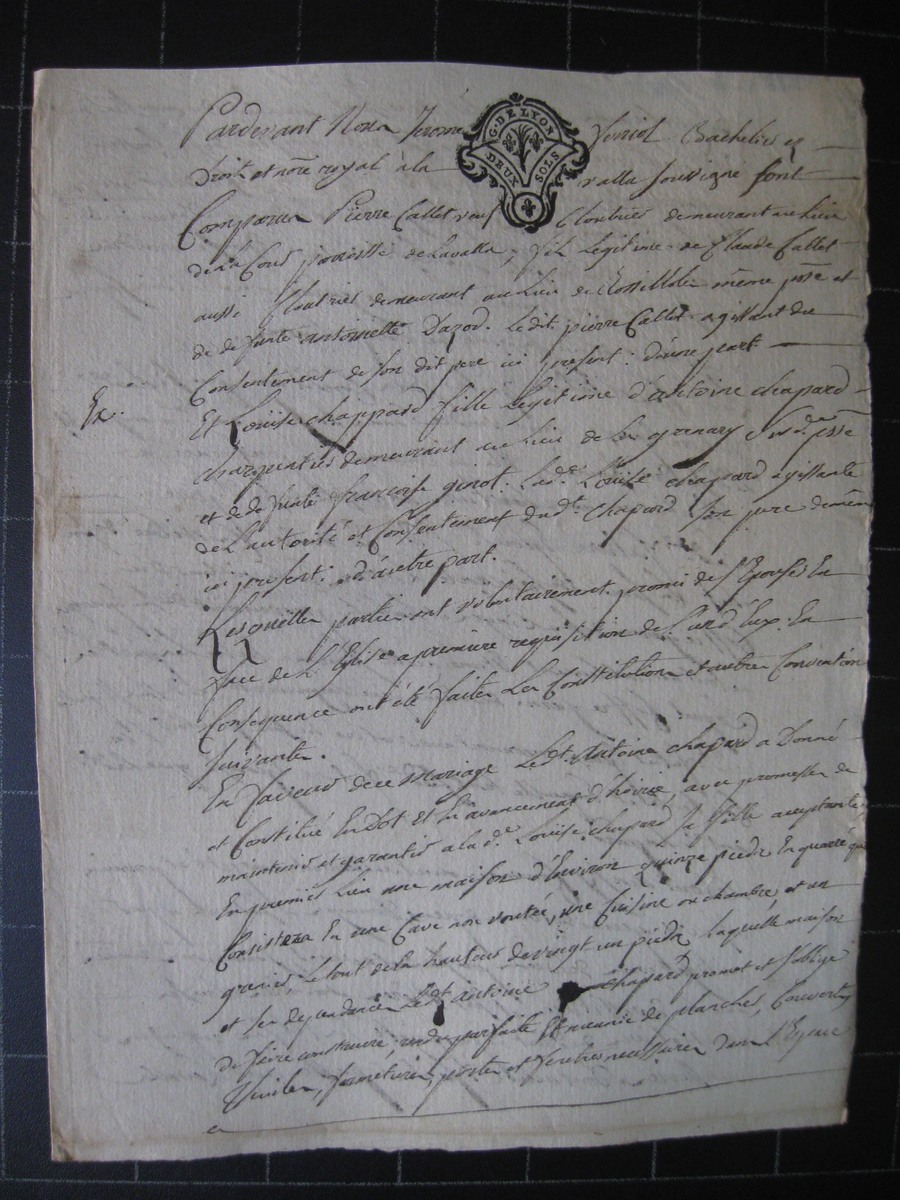 Pardevant Nous Jerome
G. DE LYON
DEUX SOLS
Bachelier en
Droit et nore royal à la valla soussigné font
Comparus Pierre Callet veuf Cloutier demeurant au Lieu
de la Cour paroisse de Lavalla, fils Legitime de Claude Callet
aussi Cloutier demeurant au Lieu de Rossillol même psse et
de defunte antoinette Dazod. Ledit pierre Callet agissant du
Consentement de son dit pere ici present: d'une part
Ex.
Et Louise chappard fille Legitime d'antoine chapard
charpentier demeurant au Lieu de psse
et de defunte francoise ginot. Lade. Louise chapard agissante
de L'autorité et Consentement dudt. chapard son pere
ici present: d'autre part.
Lesquelles parties ont volontairement promi de s'Epouser En
face de L'Eglise a premiere requisition de L'un d'Eux. En
Consequence ont été faites Les Constitutions et autres Conventions
suivantes.
En faveur de ce Mariage Ledt. Antoine chapard a Donné
et Constitué En Dot et En avancement d'hoirie, avec promesses de
maintenir et garantir a lade. Louise chapard sa fille acceptante,
En premier Lieu une maison d'Environ quinze pieds En quarré qui
Consistera En une Cave non voutée, une Cuisine ou chambre et un
grenier, Le tout de la hauteur de vingt un pieds laquelle maison
et ses dependances Ledt. antoine chapard promet et s'oblige
de faire construire, rendre parfaite Et de planches, Couverte
thuiles, fermetures, portes et fenetres necessaires dans l'Espace